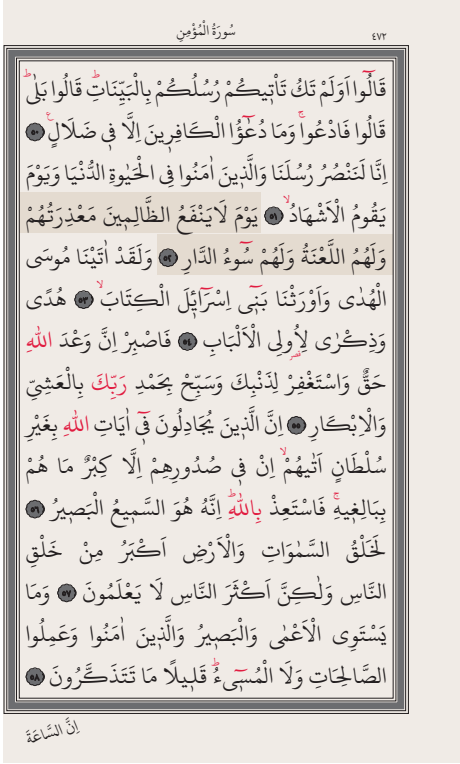 سُورَةُ الْمُؤْمِنِ
٤٧٢
قَالُٓوا اَوَلَمْ تَكُ تَأْتٖيكُمْ رُسُلُكُمْ بِالْبَيِّنَاتِؕ قَالُوا بَلٰىؕ
قَالُوا فَادْعُواۚ وَمَا دُعٰٓؤُا الْكَافِرٖينَ اِلَّا فٖي ضَلَالٍࣖ ﴿٥٠﴾
اِنَّا لَنَنْصُرُ رُسُلَنَا وَالَّذٖينَ اٰمَنُوا فِي الْحَيٰوةِ الدُّنْيَا وَيَوْمَ
يَقُومُ الْاَشْهَادُۙ ﴿٥١﴾ يَوْمَ لَا يَنْفَعُ الظَّالِمٖينَ مَعْذِرَتُهُمْ
وَلَهُمُ اللَّعْنَةُ وَلَهُمْ سُٓوءُ الدَّارِ ﴿٥٢﴾ وَلَقَدْ اٰتَيْنَا مُوسَى
الْهُدٰى وَاَوْرَثْنَا بَنٖٓي اِسْرَٓائٖلَ الْكِتَابَۙ ﴿٥٣﴾ هُدًى
وَذِكْرٰى لِاُو۬لِي الْاَلْبَابِ ﴿٥٤﴾ فَاصْبِرْ اِنَّ وَعْدَ اللّٰهِ
قصر
حَقٌّ وَاسْتَغْفِرْ لِذَنْبِكَ وَسَبِّحْ بِحَمْدِ رَبِّكَ بِالْعَشِيِّ
وَالْاِبْكَارِ ﴿٥٥﴾ اِنَّ الَّذٖينَ يُجَادِلُونَ فٖٓي اٰيَاتِ اللّٰهِ بِغَيْرِ
سُلْطَانٍ اَتٰيهُمْۙ اِنْ فٖي صُدُورِهِمْ اِلَّا كِبْرٌ مَا هُمْ
بِبَالِغٖيهِۚ فَاسْتَعِذْ بِاللّٰهِؕ اِنَّهُ هُوَ السَّمٖيعُ الْبَصٖيرُ ﴿٥٦﴾
لَخَلْقُ السَّمٰوَاتِ وَالْاَرْضِ اَكْبَرُ مِنْ خَلْقِ
النَّاسِ وَلٰكِنَّ اَكْثَرَ النَّاسِ لَا يَعْلَمُونَ ﴿٥٧﴾ وَمَا
يَسْتَوِي الْاَعْمٰى وَالْبَصٖيرُ وَالَّذٖينَ اٰمَنُوا وَعَمِلُوا
الصَّالِحَاتِ وَلَا الْمُسٖٓيءُؕ قَلٖيلًا مَا تَتَذَكَّرُونَ ﴿٥٨﴾
اِنَّ السَّاعَةَ